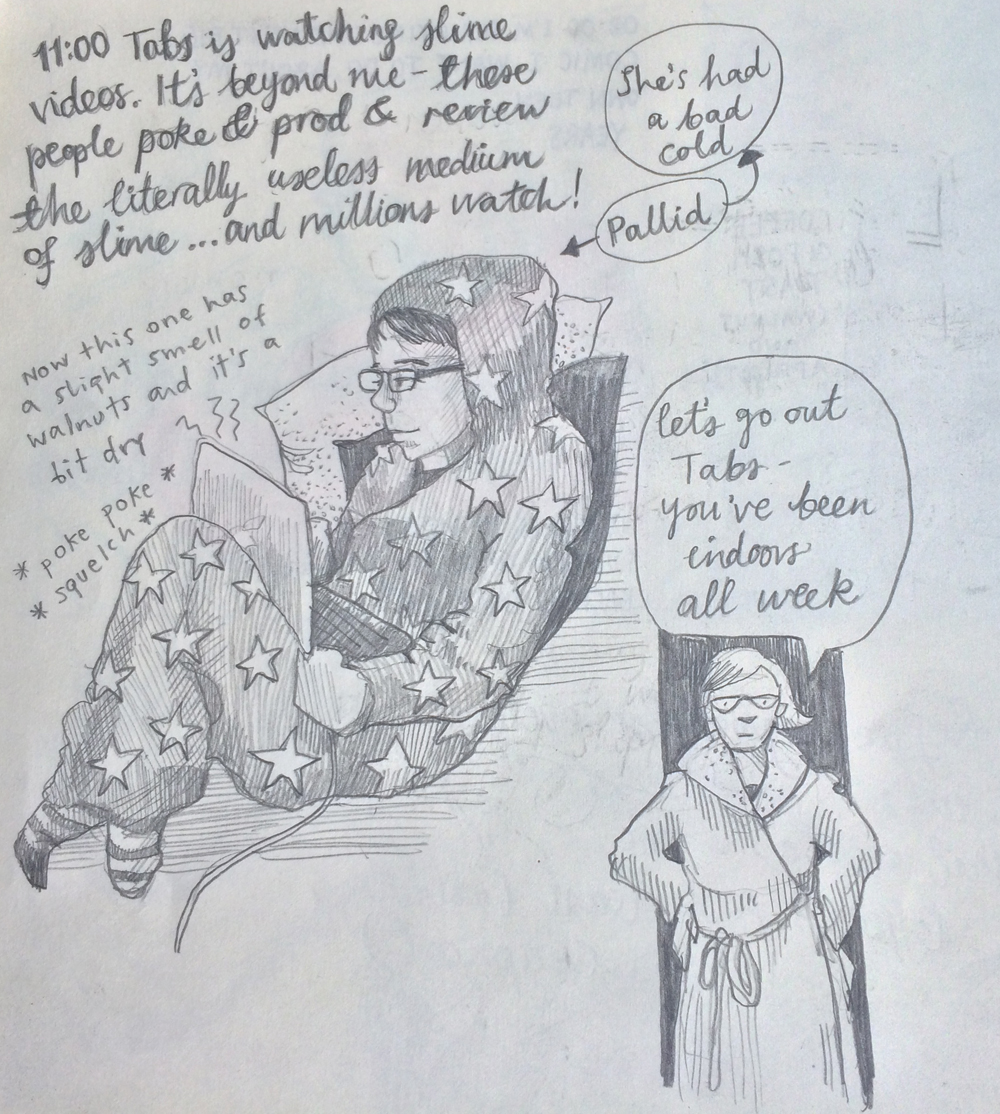 11:00 Tabs is watching slime
videos. It's beyond me - these
people poke & prod & review
the literally useless medium
of slime... and millions watch!
She's had
a bad
cold
Pallid
Now this one has
a slight smell of
walnuts and it's a
bit dry
* poke poke *
* squelch *
let's go out
Tabs -
you've been
indoors
all week